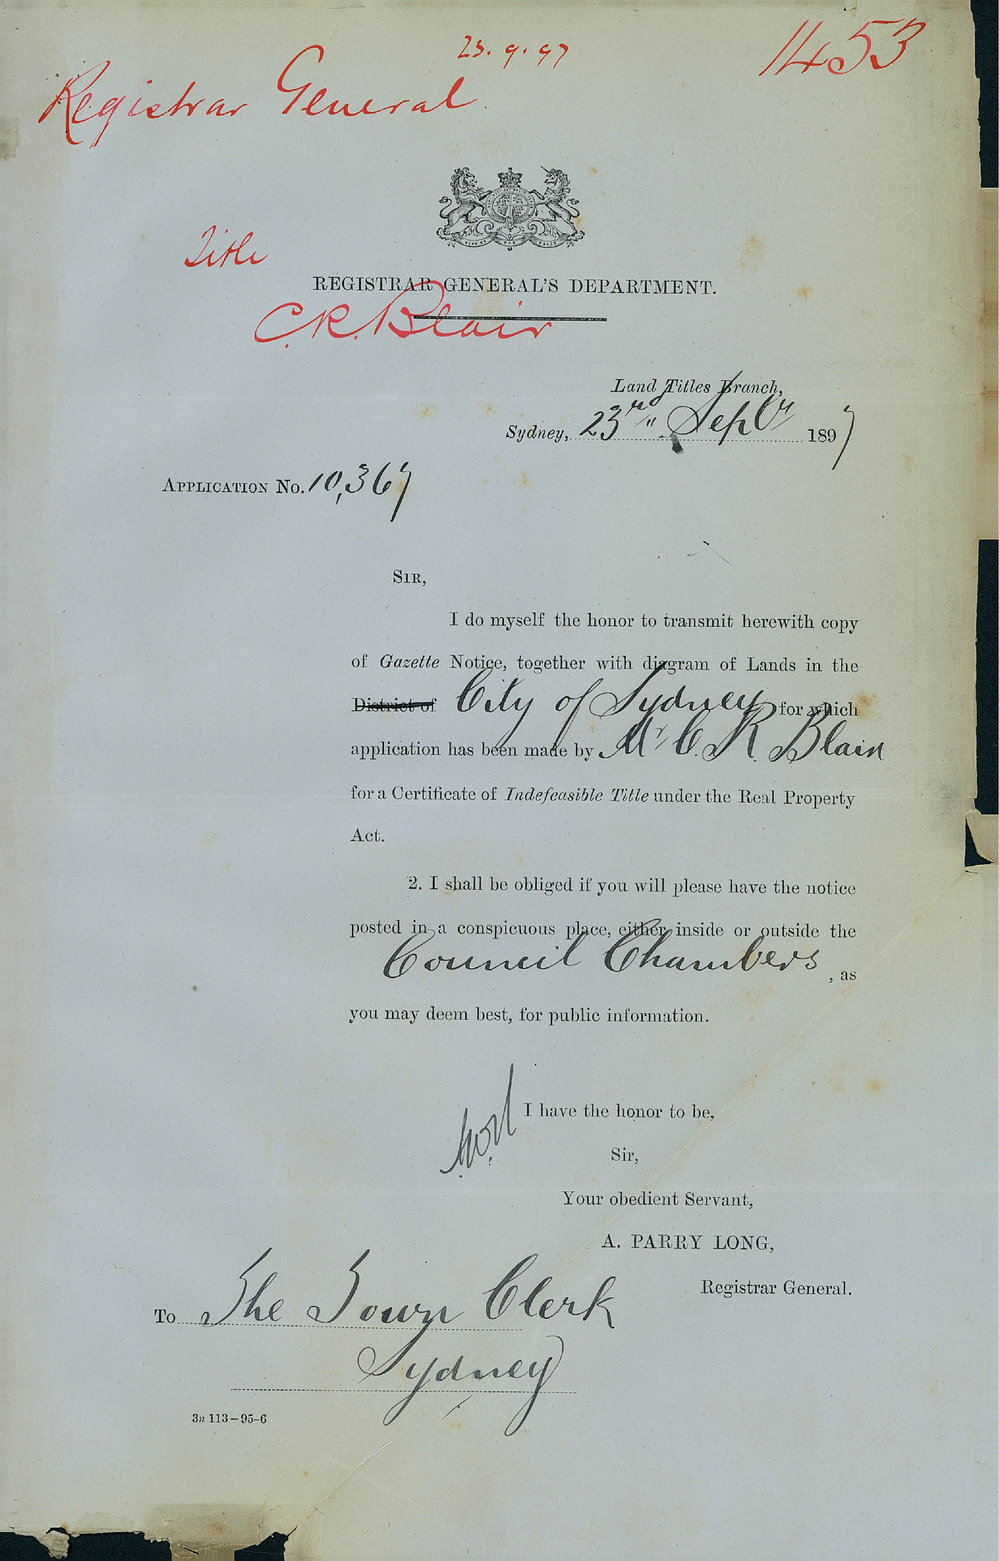 23.9.97
1453
Registrar General
Title
REGISTRAR GENERAL'S DEPARTMENT.
C.R. Blair
Land Titles Branch,
Sydney, 23rd Septr 1897
APPLICATION No. 10,367
SIR,
I do myself the honor to transmit herewith copy
of Gazette Notice, together with diagram of Lands in the
District of City of Sydney for which
application has been made by Mr C. R. Blair
for a Certificate of Indefeasible Title under the Real Property
Act.
2. I shall be obliged if you will please have the notice
posted in a conspicuous place, either inside or outside the
Council Chambers, as
you may deem best, for public information.
I have the honor to be,
Sir,
Your obedient Servant,
A. PARRY LONG,
Registrar General.
To The Town Clerk
Sydney
3n 113-95-6